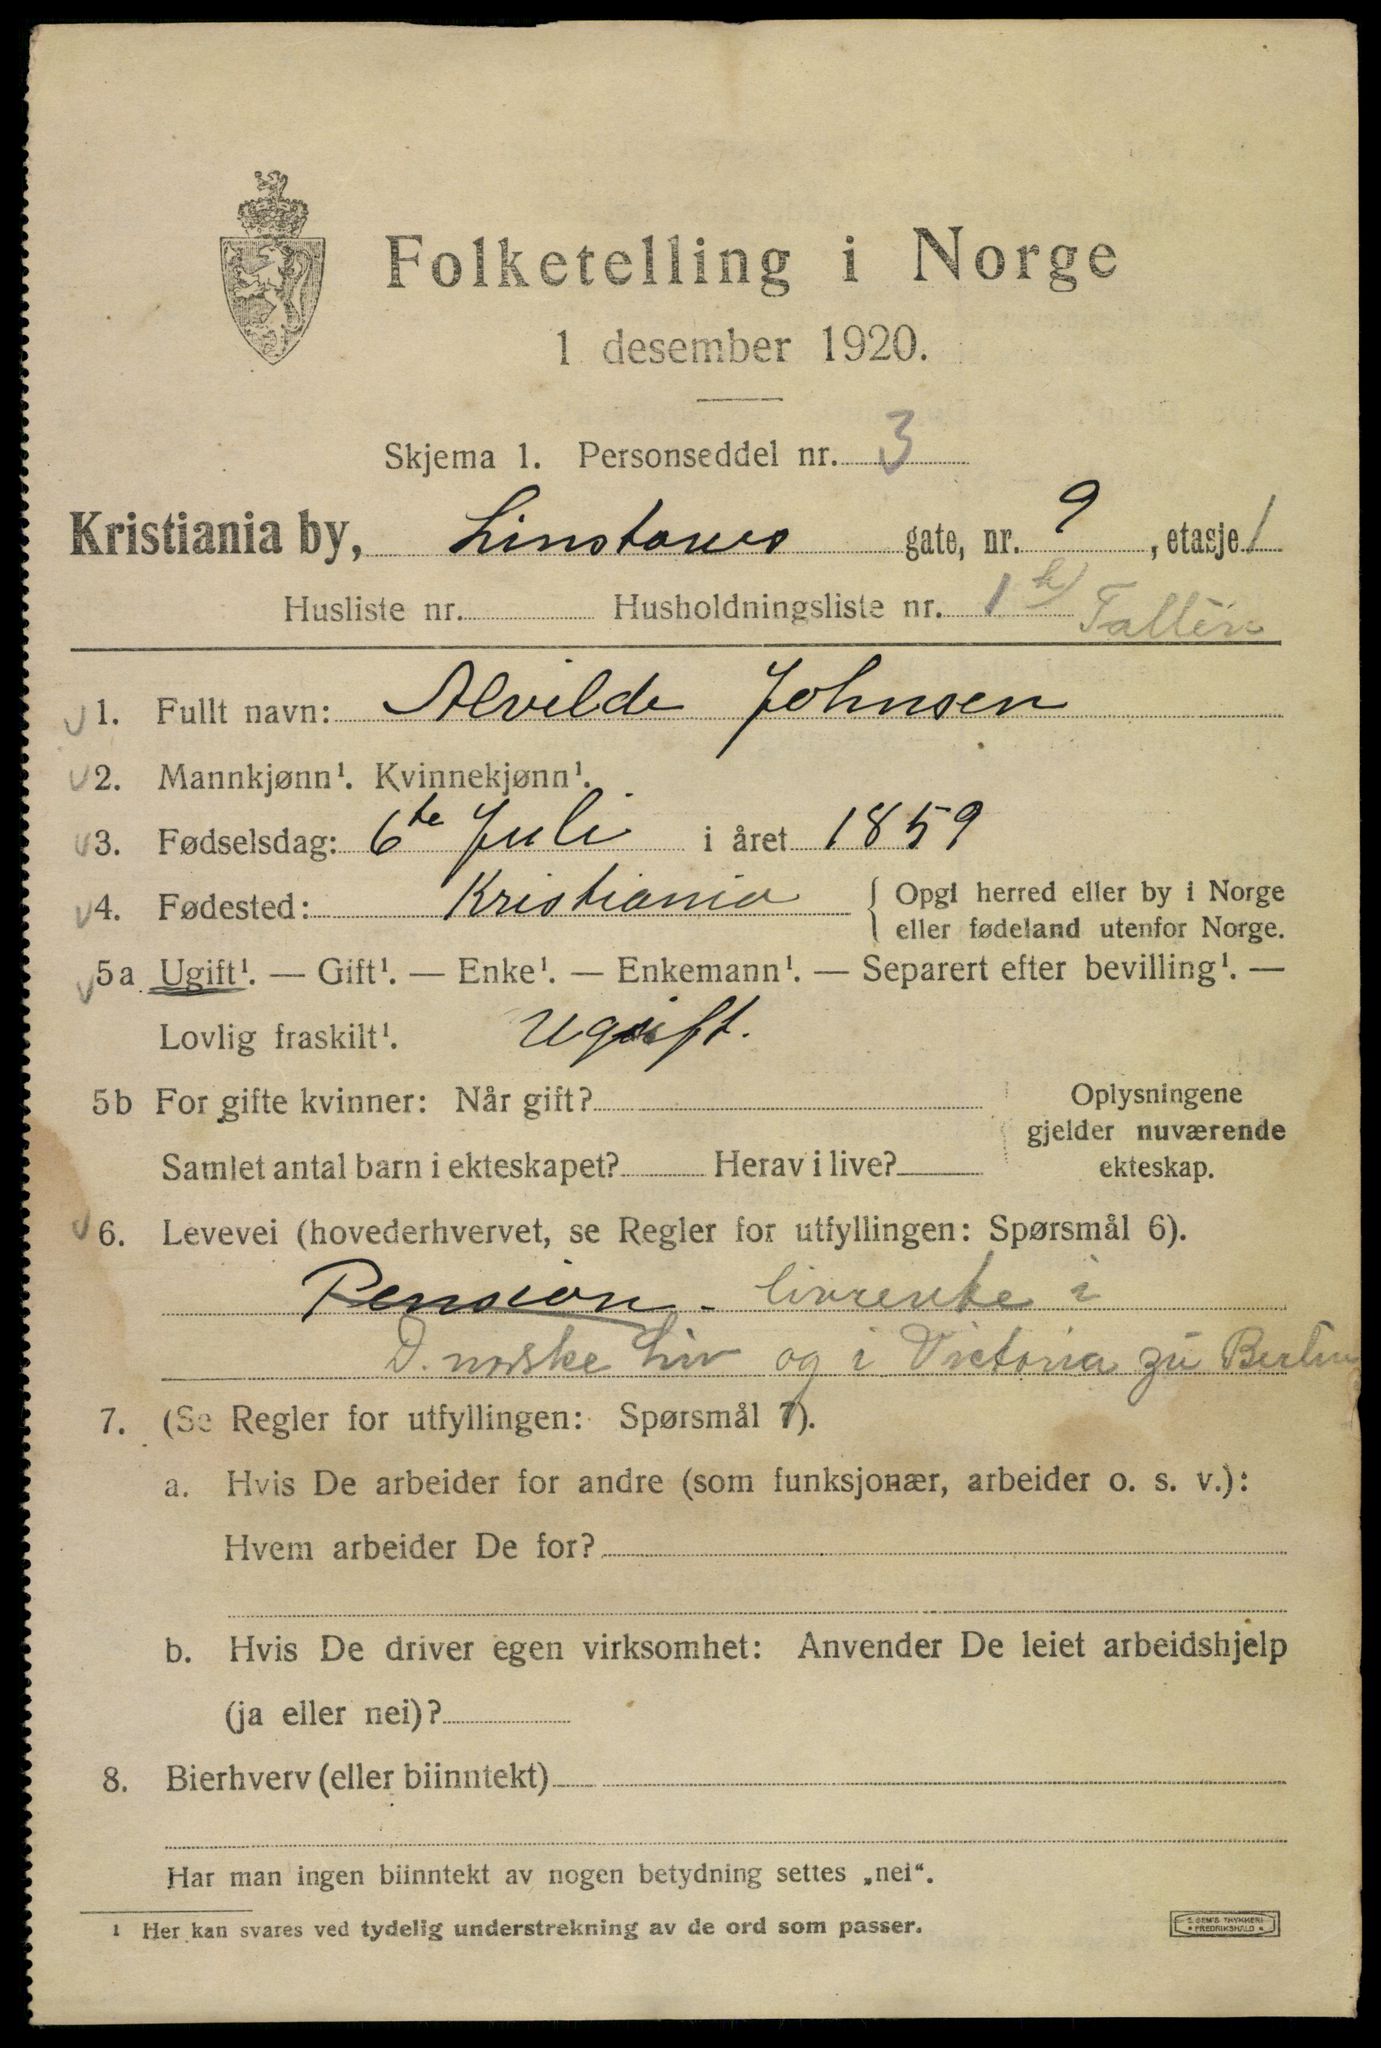 Folketelling i Norge
1 desember 1920.
Skjema 1. Personseddel nr. 3
Kristiania by, Linstows gate, nr. 9, etasje 1
Husliste nr. Husholdningsliste nr. 1
1. Fullt navn: Alvilde Johnsen
2. Mannkjønn¹. Kvinnekjønn¹.
3. Fødselsdag: 6te Juli i året 1859
4. Fødested: Kristiania { Opgi herred eller by i Norge
eller fødeland utenfor Norge.
5a Ugift¹. — Gift¹. — Enke¹. — Enkemann¹. — Separert efter bevilling¹. —
Lovlig fraskilt¹. Ugift.
5b For gifte kvinner: Når gift? Oplysningene
gjelder nuværende
Samlet antal barn i ekteskapet? Herav i live? ekteskap.
6. Levevei (hovederhvervet, se Regler for utfyllingen: Spørsmål 6).
Pension - livrente i
D. norske Liv og i Victoria zu Berlin
7. (Se Regler for utfyllingen: Spørsmål 7).
a. Hvis De arbeider for andre (som funksjonær, arbeider o. s. v.):
Hvem arbeider De for?
b. Hvis De driver egen virksomhet: Anvender De leiet arbeidshjelp
(ja eller nei)?
8. Bierhverv (eller biinntekt)
Har man ingen biinntekt av nogen betydning settes „nei“.
¹ Her kan svares ved tydelig understrekning av de ord som passer.